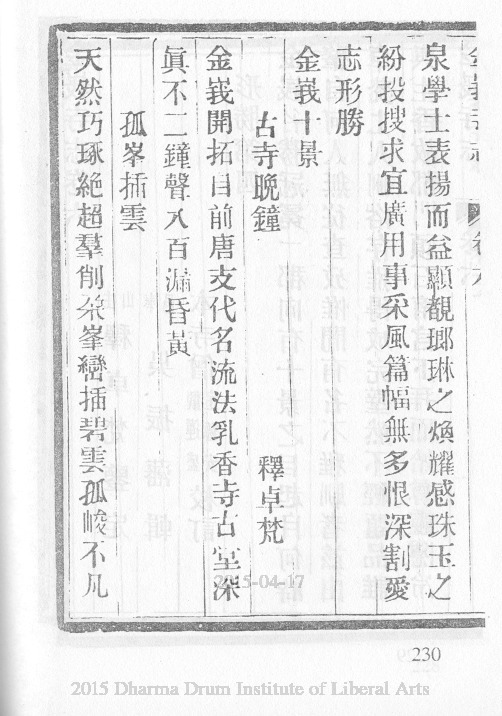 泉學士表揚而益顯覩瑯琳之煥耀感珠玉之
紛投搜求宜廣用事采風篇幅無多恨深割愛
志形勝
金峩十景
古寺晚鐘　釋卓梵
金峩開拓自前唐支代名流法乳香寺古堂深
眞不二鐘聲八百漏昏黃
孤峯插雲
天然巧琢絶超羣削朶峯巒插碧雲孤峻不凡
2015-04-17
230
2015 Dharma Drum Institute of Liberal Arts